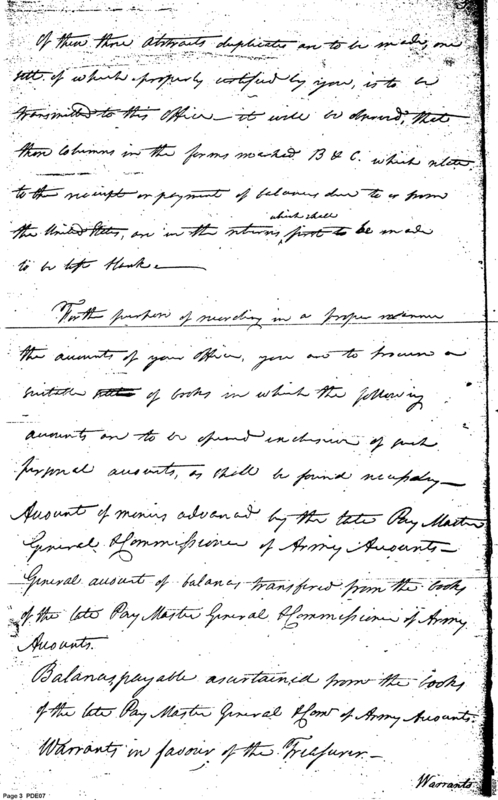 Of these three Abstracts duplicates are to be made, one
sett of which properly certified by you, is to be
transmitted to this Office — it will be observed, that
those Columns in the forms marked B & C. which relate
to the receipt or payment of balances due to or from
which shall
the United States, are in the returns, first to be made
to be left blank. —
For the purpose of recording in a proper manner
the accounts of your Office, you are to procure a
suitable sett of books in which the following
accounts are to be opened exclusive of such
personal accounts, as shall be found necessary —
Account of monies advanced by the late Pay Master
General & Commissioner of Army Accounts —
General account of balances transfered from the books
of the late Pay Master General & Commissioner of Army
Accounts.
Balances payable ascertained from the books
of the late Pay Master General & Comr. of Army Accounts.
Warrants in favour of the Treasurer. —
Warrants
Page 3 PDE07